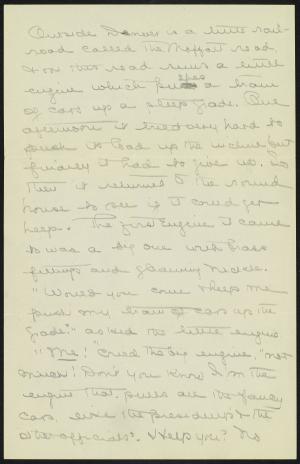 Outside Denver is a little rail-
road called the Moffatt road,
& on this road runs a little
engine which pushes a train
of cars up a steep grade. One
afternoon it tried very hard to
push its load up the incline but
finally it had to give up. So
then it returned to the round
house to see if it could get
help. The first engine it came
to was a big one with brass
fittings and gleaming nickle.
"Would you come & help me
push my train of cars up the
grade?" asked the little engine
"Me!" cried the big engine, "not
much! Don't you know I'm the
engine that pulls all the fancy
cars, like the presidents & the
other officials? & help you? No